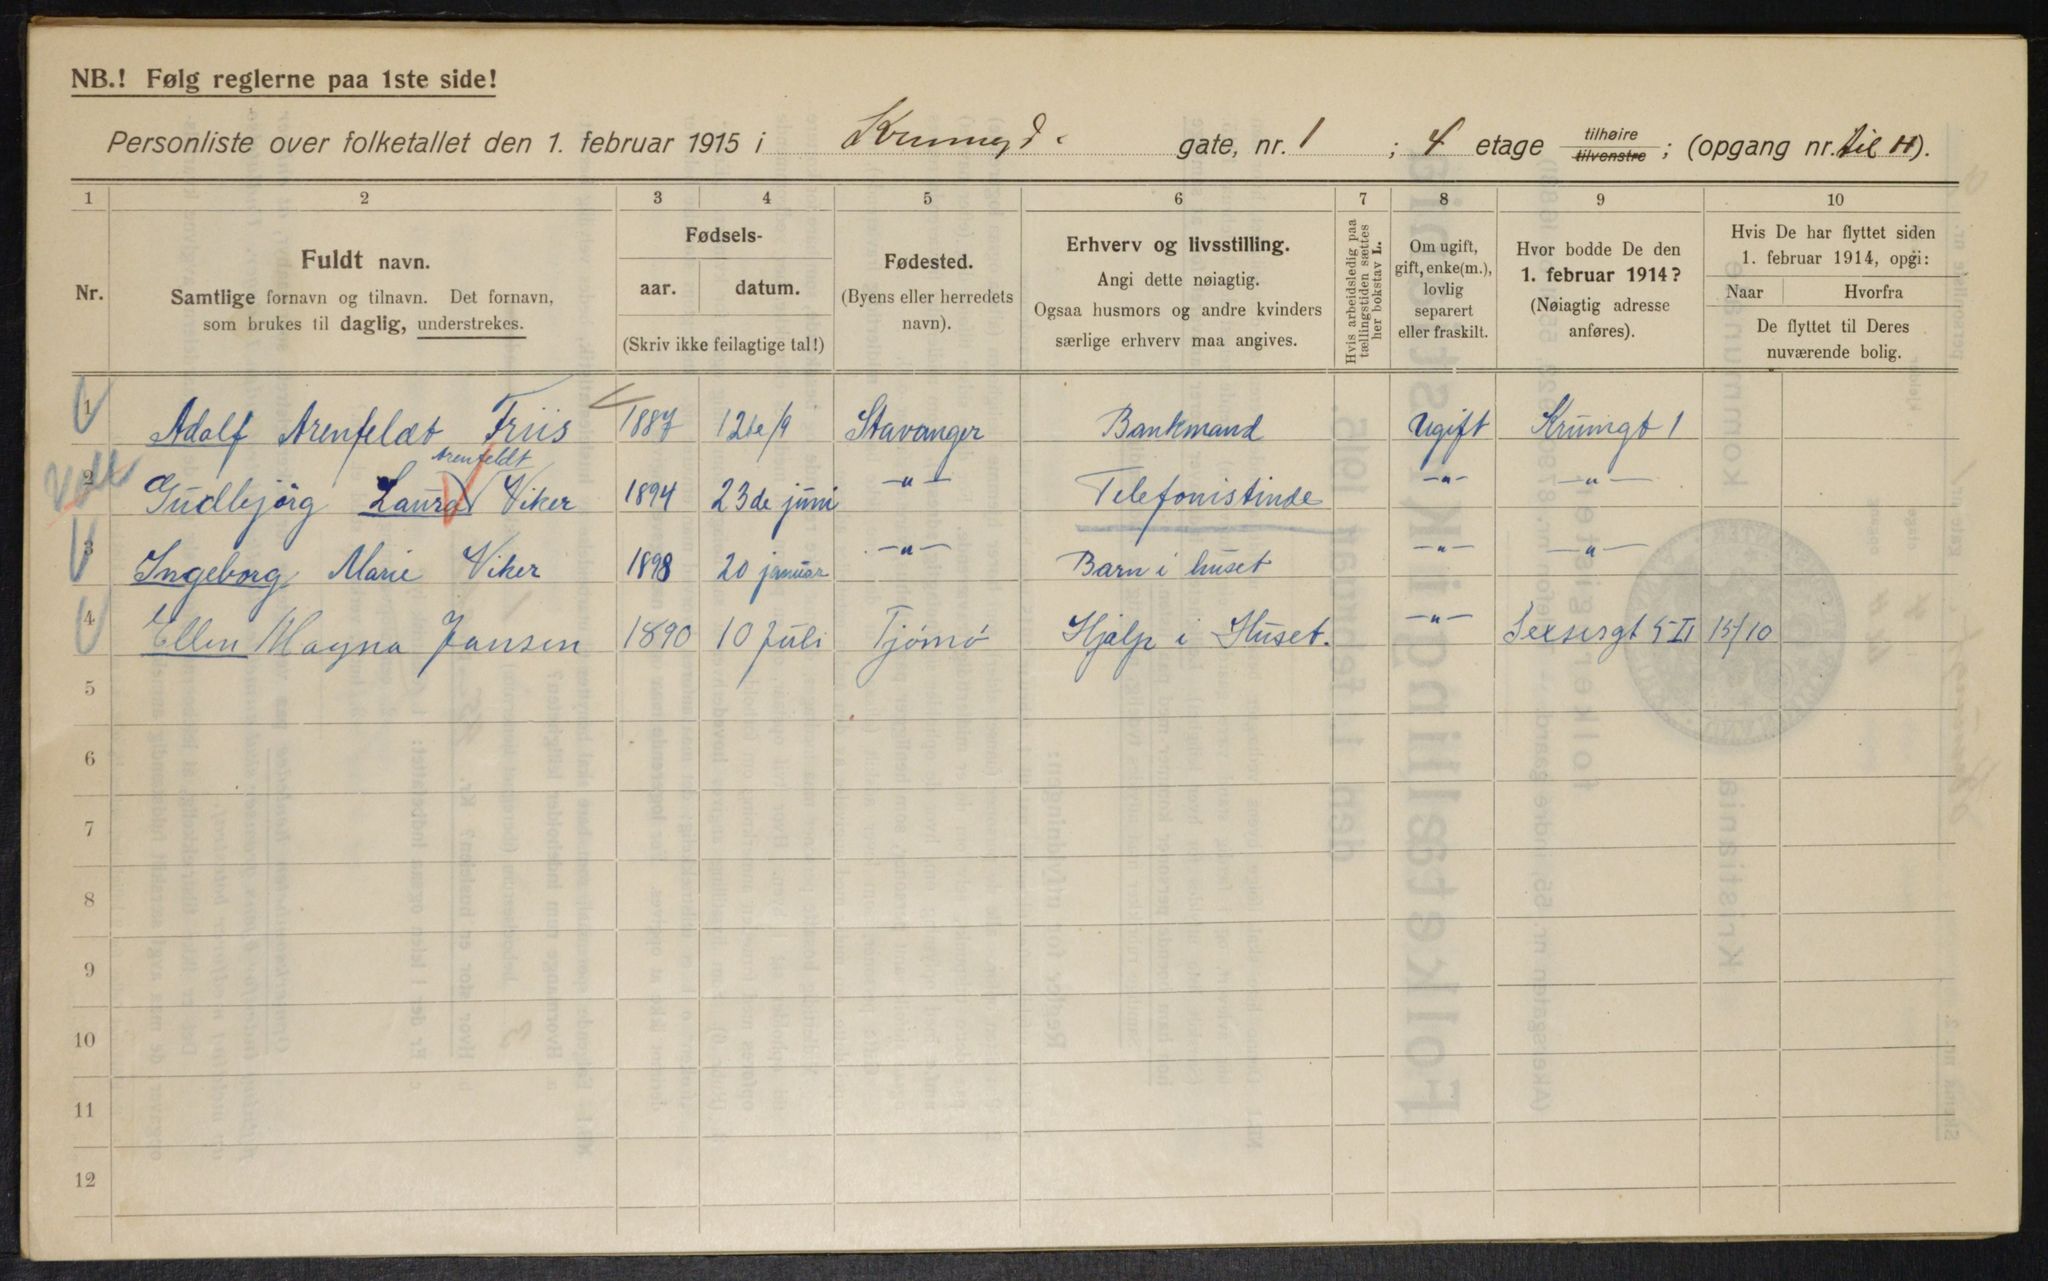 NB.! Følg reglerne paa 1ste side!
Personliste over folketallet den 1. februar 1915 i Krumgd. gate, nr. 1 ; 4 etage tilhøire tilvenstre ; (opgang nr. til H).
1 2 3 4 5 6 7 8 9 10
Nr.
Fuldt navn.
Samtlige fornavn og tilnavn. Det fornavn,
som brukes til daglig, understrekes.
Fødsels-
aar. datum.
(Skriv ikke feilagtige tal!)
Fødested.
(Byens eller herredets
navn).
Erhverv og livsstilling.
Angi dette nøiagtig.
Ogsaa husmors og andre kvinders
særlige erhverv maa angives.
Hvis arbeidsledig paa
tællingstiden sættes
her bokstav L.
Om ugift,
gift, enke(m.),
lovlig
separert
eller fraskilt.
Hvor bodde De den
1. februar 1914?
(Nøiagtig adresse
anføres).
Hvis De har flyttet siden
1. februar 1914, opgi:
Naar Hvorfra
De flyttet til Deres
nuværende bolig.
1 Adolf Arenfelæt Friis 1887 12te/9 Stavanger Bankmand Ugift Krumgt 1
Arenfeldt
2 Gudbjörg Laura Viker 1894 23de juni -"- Telefonistinde -"- -"-
3 Ingeborg Marie Viker 1898 20 januar -"- Barn i huset -"- -"-
4 Ellen Magna Jansen 1890 10 Juli Tjömö Hjælp i Huset. -"- 5 II 15/10
5
6
7
8
9
10
11
12